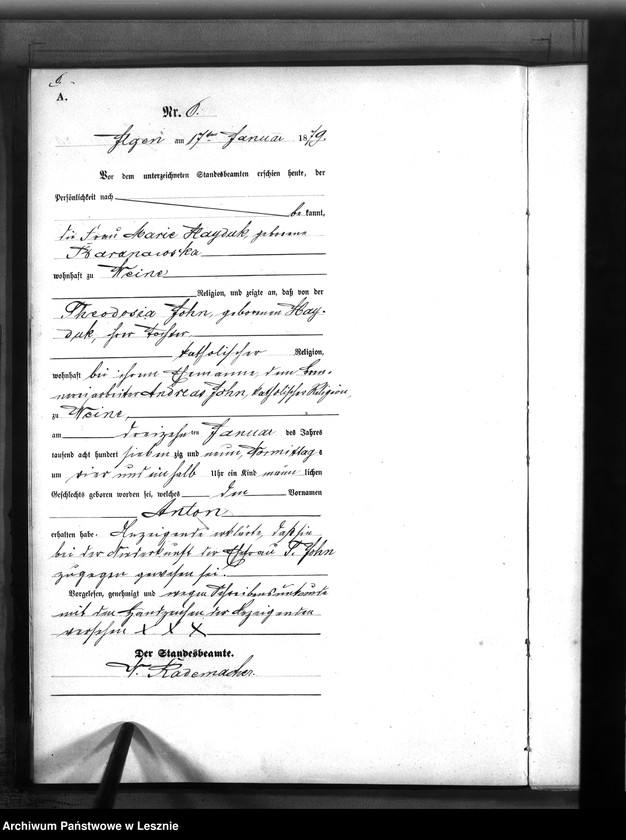 6.
A.
Nr. 6.
Ilgen am 17ten Januar 1879.
Vor dem unterzeichneten Standesbeamten erschien heute, der
Persönlichkeit nach
be kannt,
die Frau Marie Hayduk, geborene
wohnhaft zu Weine
Religion, und zeigte an, daß von der
Theodosia John, geborenen Hay-
duk, ihrer Tochter
katholischer Religion,
wohnhaft bei ihrem Ehemanne, dem
arbeiter Andreas John, katholischer Religion,
zu Weine,
am dreizehnten Januar des Jahres
tausend acht hundert sieben zig und neun, Vormittags
um vier und ein halb Uhr ein Kind männ lichen
Geschlechts geboren worden sei, welches den Vornamen
Anton
erhalten habe. Anzeigende erklärte, daß sie
bei der Niederkunft der Ehefrau T. John
zugegen gewesen sei.
Vorgelesen, genehmigt und wegen Schreibensunkunde
mit den Handzeichen der Anzeigenden
versehen X X X
Der Standesbeamte.
Rademacher.
Archiwum Państwowe w Lesznie